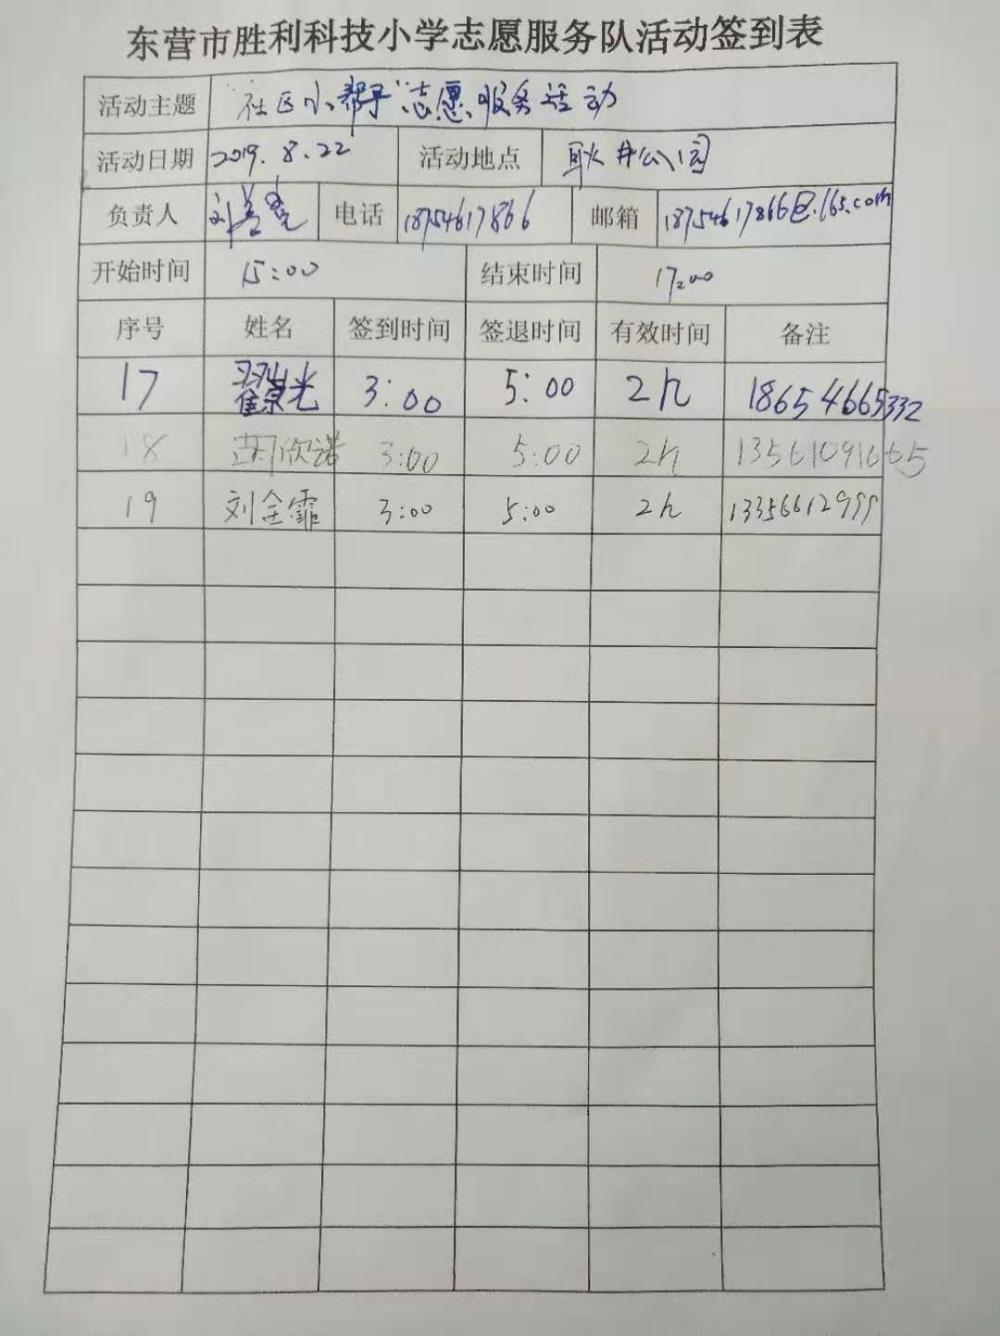 东营市胜利科技小学志愿服务队活动签到表
活动主题 社区小帮手"志愿服务活动
活动日期 2019.8.22 活动地点 耿井公园
负责人 刘 电话 18754617866 邮箱 18754617866@.163.com
开始时间 15:00 结束时间 17:00
序号 姓名 签到时间 签退时间 有效时间 备注
17 翟景光 3:00 5:00 2h 18654665332
18 胡欣诺 3:00 5:00 2h 13561091665
19 刘全霏 3:00 5:00 2h 13356612999